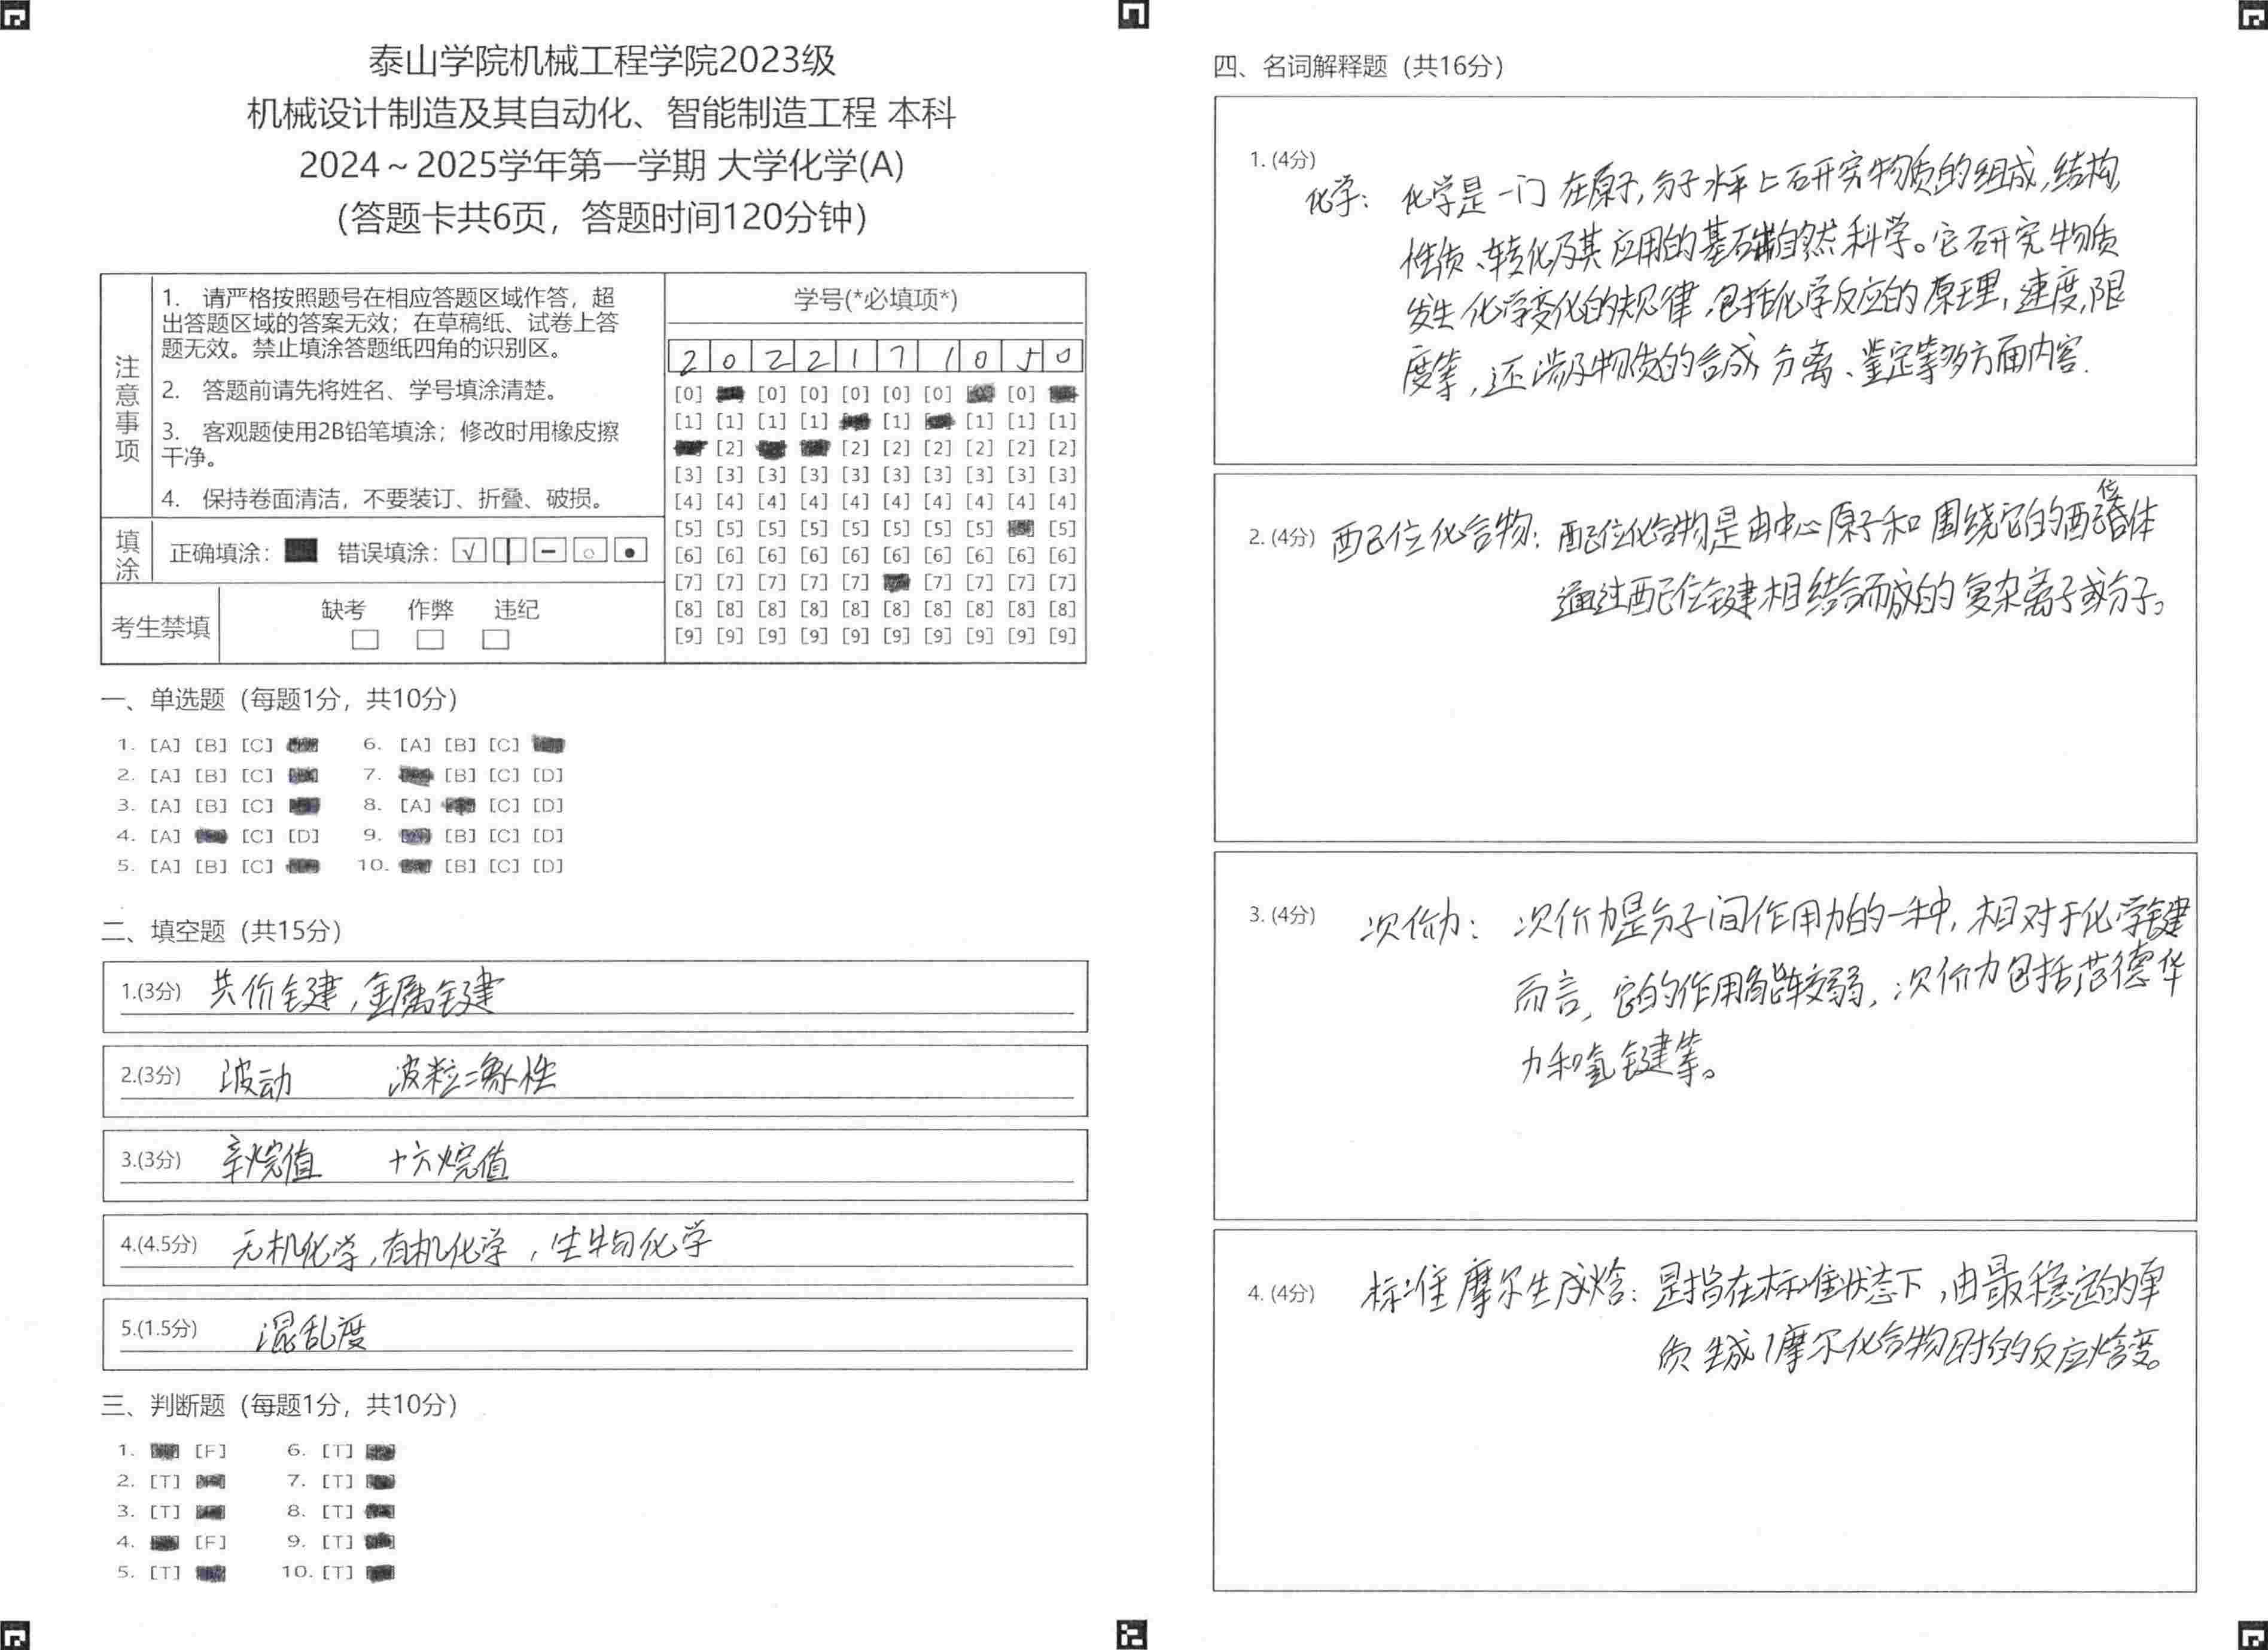 泰山学院机械工程学院2023级
机械设计制造及其自动化、智能制造工程 本科
2024～2025学年第一学期 大学化学(A)
(答题卡共6页，答题时间120分钟)
注意事项
1. 请严格按照题号在相应答题区域作答，超
出答题区域的答案无效；在草稿纸、试卷上答
题无效。禁止填涂答题纸四角的识别区。
2. 答题前请先将姓名、学号填涂清楚。
3. 客观题使用2B铅笔填涂；修改时用橡皮擦
干净。
4. 保持卷面清洁，不要装订、折叠、破损。
填涂 正确填涂： 错误填涂：
考生禁填 缺考 作弊 违纪
学号(*必填项*)
2 0 2 2 1 7 1 0 5 0
[0] [0] [0] [0] [0] [0] [0] [0]
[1] [1] [1] [1] [1] [1] [1] [1]
[2] [2] [2] [2] [2] [2] [2]
[3] [3] [3] [3] [3] [3] [3] [3] [3] [3]
[4] [4] [4] [4] [4] [4] [4] [4] [4] [4]
[5] [5] [5] [5] [5] [5] [5] [5] [5]
[6] [6] [6] [6] [6] [6] [6] [6] [6] [6]
[7] [7] [7] [7] [7] [7] [7] [7] [7]
[8] [8] [8] [8] [8] [8] [8] [8] [8] [8]
[9] [9] [9] [9] [9] [9] [9] [9] [9] [9]
一、单选题（每题1分，共10分）
1. [A] [B] [C] 6. [A] [B] [C]
2. [A] [B] [C] 7. [B] [C] [D]
3. [A] [B] [C] 8. [A] [C] [D]
4. [A] [C] [D] 9. [B] [C] [D]
5. [A] [B] [C] 10. [B] [C] [D]
二、填空题（共15分）
1.(3分) 共价键，金属键
2.(3分) 波动 波粒二象性
3.(3分) 辛烷值 十六烷值
4.(4.5分) 无机化学，有机化学，生物化学
5.(1.5分) 混乱度
三、判断题（每题1分，共10分）
1. [F] 6. [T]
2. [T] 7. [T]
3. [T] 8. [T]
4. [F] 9. [T]
5. [T] 10. [T]
四、名词解释题（共16分）
1. (4分)
化学： 化学是一门在原子，分子水平上研究物质的组成，结构，
性质、转化及其应用的基础自然科学。它研究物质
发生化学变化的规律，包括化学反应的原理，速度，限
度等，还涉及物质的合成 分离、鉴定等多方面内容.
2. (4分) 配位化合物：配位化合物是由中心原子和围绕它的配位体
通过配位键相结合而成的复杂离子或分子。
3. (4分) 次价力： 次价力是分子间作用力的一种，相对于化学键
而言，它的作用能较弱，次价力包括范德华
力和氢键等。
4. (4分) 标准摩尔生成焓：是指在标准状态下，由最稳定的单
质生成1摩尔化合物时的反应焓变。